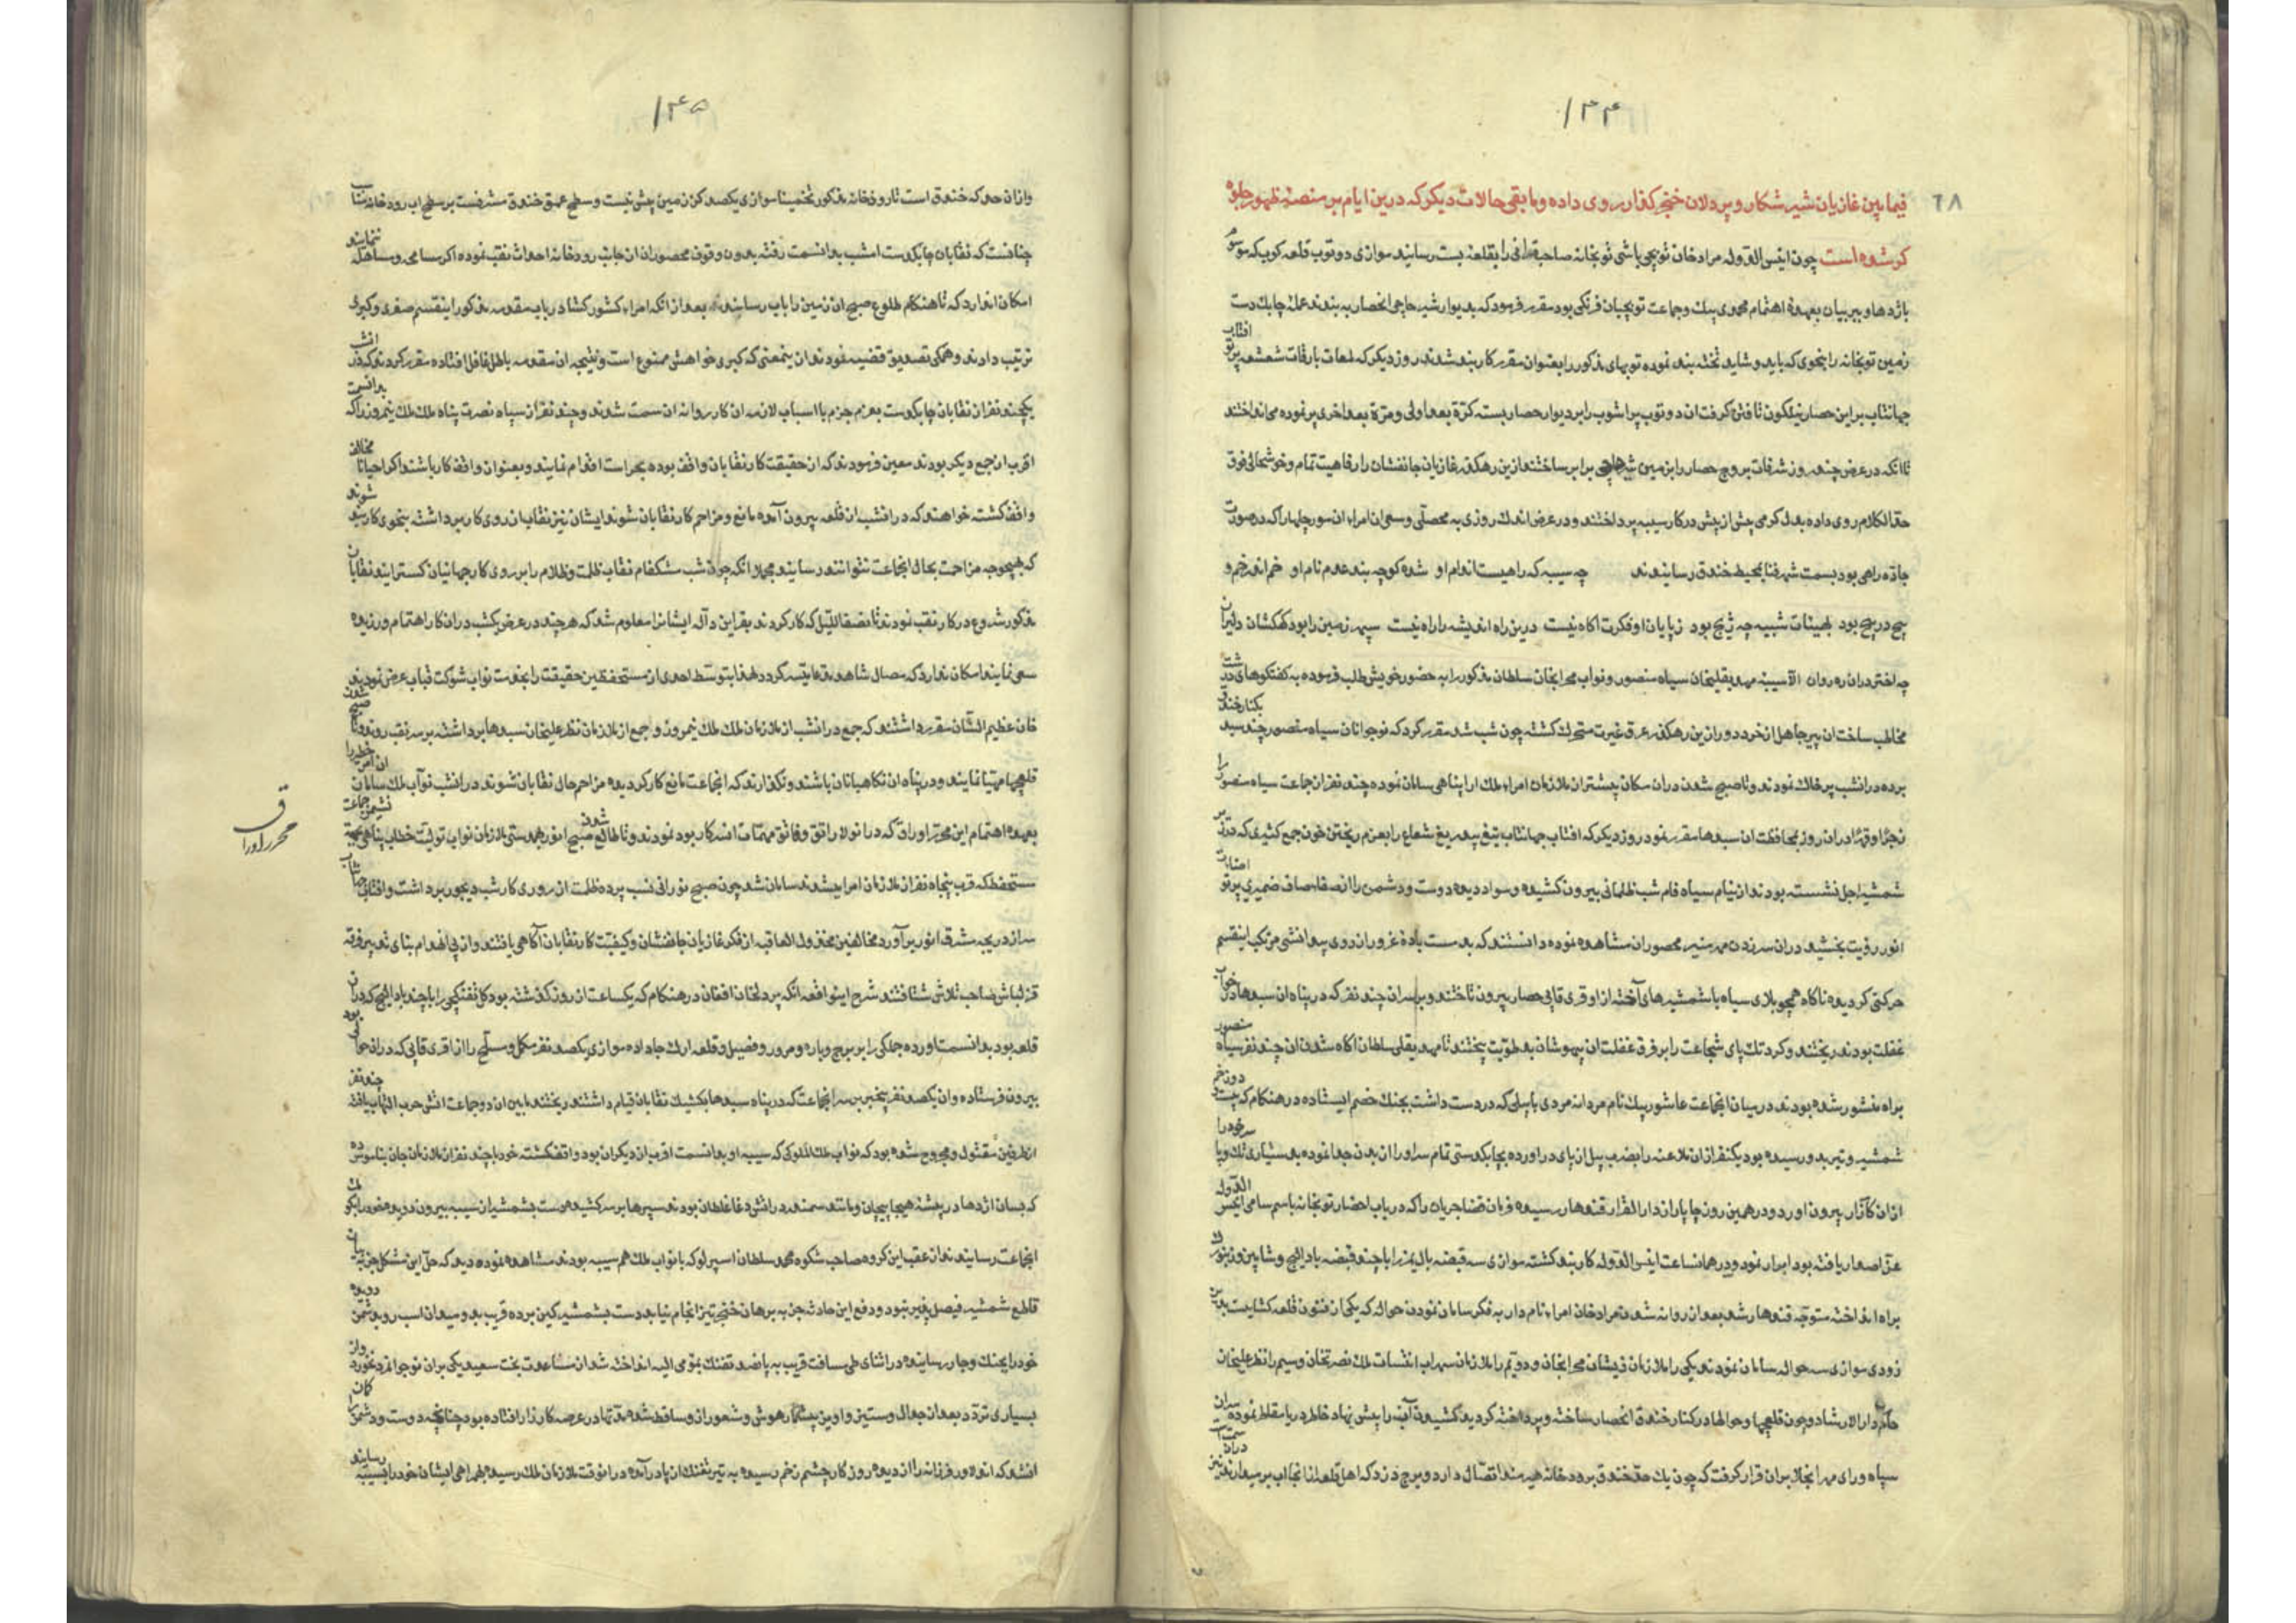 ۱۴۴
۶۸
فیمابین غازیان شیر شکار و پردلان خنجر کذار روی داده و مابقی حالات دیکر که درین ایام بر منصهٔ ظهور جلوه
کر شده است چون انیس الدوله مراد خان توپچی باشی توپخانه صاحبقرانی را بقلعه بست رسانید موازی دو توپ قلعه کوب که موسوم
باژدها و ببر بیان بعهدهٔ اهتمام محمدی بیک و جماعت توپچیان فرنکی بود مقرر فرمود که بدیوار شیر حاجی انحصار به بندند عمله چابک دست
زمین توپخانه را بنحوی که باید و شاید تخته بند نموده توپهای مذکور را بعنوان مقرر کاربند شدند روز دیکر که لمعات بارقات شعشعه پرتو افتاب
جهانتاب بر این حصار نیلکون تافتن کرفت ان دو توپ پر اشوب را بر دیوار حصار بسته کرّة بعد اولی و مرّة بعد اخری پر نموده می انداختند
تا انکه در عرض چند روز شرفات بروج حصار را بزمین برابر ساختند ازین رهکذر غازیان جانفشان را رفاهیت تمام و خوشحالی فوق
حد الکلام روی داده بدل کرمی بیش از پیش در کار سیبه پرداختند و در عرض اندک روزی به محصلی و سعی ان امراء ان سورچلها را که در صورت
جاده راهی بود بسمت شهر فنا بمحیط خندق رسانیدند چه سیبه که راهیست اندام او شده کوچه بند عدم نام او خم اندر خم و
پیچ در پیچ بود بهیئات شبیه چه پیچ بود ز پایان او فکرت اکاه نیست درین راه اندیشه را راه نیست سپهر زمین را بود کهکشان دلیران
چه اختر در ان ره روان مهدیقلیخان سپاه منصور و نواب محرابخان سلطان مذکور را به حضور خویش طلب فرموده به کفتکوهای درشت
مخاطب ساخت ان پیر جاهل از خرد دور ازین رهکذر عرق غیرت متحرک کشته چون شب شد مقرر کرد که نوجوانان سپاه منصور چند سبد بکنار خندق
برده در انشب پر خاک نمودند و تا صبح شدن در ان مکان بیشتر از ملازمان امراء ملک ارا پناهی سامان نموده چند نفر از جماعت سپاه منصور را
در ان روز بمحافظت ان سبدها مقرر نمود روز دیکر که افتاب جهانتاب تیغ بیدریغ شعاع را بعزم ریختن خون جمع کثیری که در زیر
شمشیر اجل نشسته بودند از نیام سیاه فام شب ظلمانی بیرون کشیده و سواد دیده دوست و دشمن را از صفاء صاف ضمیری پرتو
انور رؤیت بخشید در ان سر زدن مهر منیر محصوران مشاهده نموده دانستند که بدست بادهٔ غرور از روی بیدانشی مرتکب اینقسم
حرکتی کردیده ناکاه همچو بلای سیاه با شمشیرهای آخته از اوقری قاپی حصار بیرون تاختند و بر سر ان چند نفر که در پناه ان سبدها در خواب
غفلت بودند ریختند و کرد تک پای شجاعت را بر فرق غفلت ان بیهوشان بد طویّت بیختند تا مهدیقلی سلطان اکاه شدن ان چند نفر سپاه منصور
براه منشور شده بودند در میان انجماعت عاشور بیک نام مردانه مردی با بیلی که در دست داشت بجنک خصم ایستاده در هنکام که بیست دو زخم
شمشیر و تیر بدو رسیده بود یکنفر از ان ملاعنه را بضرب بیل از پای در اورده بچابکدستی تمام سر او را از بدن جدا نموده بدستیاری تک و پا سر خود را
از ان کارزار بیرون اورد و در همین روز چاپار از دار القرار قندهار رسیده فرمان قضا جریان را که در باب احضار توپخانه باسم سامی انیس الدوله
عزّ اصدار یافته بود ابراز نمود و در همانساعت انیس الدوله کاربند کشته موازی سه قبضه بالیمز را با چند قبضه بادلیج و شاهین و زنبورک
براه انداخته متوجه قندهار شد بعد از روانه شدن مراد خان امراء نام دار به فکر سامان نمودن حواله که یکی از فنون قلعه کشاییست
زودی موازی سه حواله سامان نمودند یکی را ملازمان ذیشان محرابخان و دویّم را ملازمان سهراب انتساب ملک نصرتخان و سیم را نظر علیخان
حاکم دار الارشاد و چون قلمچها و حوالها در کنار خندق انحصار ساخته و پرداخته کردید کشیدن آب را پیش نهاد خاطر دریا مقاطر نموده سران
سپاه و رای مهر انجلا بران قرار کرفت که چون یک حد خندق برودخانه هیرمند اتصال دارد و برج دزد که اهل قلعه از انجا اب بر میدارند نیز در ان سمت است
۱۴۵
و از ان حد که خندق است تا رودخانه مذکور تخمیناً موازی یکصد کز زمین بیش نیست و سطح عمق خندق مشرفست بر سطح اب رودخانه مناسب
چنانست که نقابان چابکدست امشب بدانسمت رفته بدون وقوف محصوران از ان جانب رودخانه احداث نقب نموده اکر مسامحه و مساهله ننمایند
امکان اندارد که تا هنکام طلوع صبح ان زمین را باب رسانند بعد از انکه امراء کشور کشا در باب مقدمه مذکور اینقسم صغری و کبری
ترتیب دادند و همکی تصدیق قضیه نمودند از ین معنی که کبری خواهش ممنوع است و نتیجه ان مقدمه باطل غافل افتاده مقرر کردند که در انشب
یکچند نفر از نقابان چابکدست بعزم جزم با اسباب لازمه ان کار روانه ان سمت شوند و چند نفر از سپاه نصرت پناه ملک ملک نیمروز را که بدانسمت
اقرب از جمع دیکر بودند معین فرمودند که از حقیقت کار نقابان واقف بوده بحراست اقدام نمایند و بعنوان واقف کار باشند اکر احیانا مخالف
واقف کشته خواهند که در انشب از قلعه بیرون آمده مانع و مزاحم کار نقابان شوند ایشان نیز نقاب از روی کار برداشته بنحوی کاربند شوند
که بهیچوجه مزاحمت بحال انجماعت نتوانند رسانید مجملا انکه چون شب مشکفام نقاب ظلمت و ظلام را بر روی کار جهانیان کسترانید نقابان
مذکور شروع در کار نقب نمودند تا نصف اللیل که کار کردند بقراین دآله ایشانرا معلوم شد که هر چند در عرض یکشب در ان کار اهتمام ورزیده
سعی نمایند امکان ندارد که وصال شاهد مدعا میسر کردد لهذا بتوسط احدی از مستحفظین حقیقت را بخدمت نواب شوکت قباب عرض نمودند
خان عظیم الشأن مقرر داشتند که جمع در انشب از ملازمان ملک ملک نیمروز و جمع از ملازمان نظر علیخان سبدها برداشته بر سر نقب روند و تا صبح شدن
قلمچها مهیا نمایند و در پناه ان نکاهبانان باشند و نکذارند که انجماعت مانع کار کردیده مزاحم حال نقابان شوند در انشب نوآب ملک سامان ان امر خطیر را
بعهده اهتمام این محرر اوراق که در انولا راتق و فاتق مهمات انسرکار بود نمودند و تا طالع شدن صبح انور بهمدستی ملازمان نواب تولیت خطاب پناهی بجهة نشیمن جماعت
مستحفظ که قرب پنجاه نفر از ملازمان امرا میشدند سامان شد چون صبح نورانی نسب پرده ظلمت از روری کار شب دیجور برداشت و افتاب جهانتاب
سر از دریچه مشرق انور برآورد مخالفین مخذول العاقبه از فکر غازیان جانفشان و کیفیت کار نقابان آکاهی یافتند و از پی انهدام بنای تدبیر فرقه
قزلباش صاحب تلاش شتافتند شرح اینواقعه انکه پردلخان افغان در هنکام که یکساعت از روز کذشته بود کل تفنکچی را با چند بادلیج که در ان
قلعه بود بدانسمت اورده جملکی را بر برج و باره و مرور و فصیل و قلعه ارک جا داده موازی یکصد نفر مکمل و مسلح را از اقری قاپی که در انحوالی بود
بیرون فرستاده و ان یکصد نفر بیخبر بر سر انجماعت که در پناه سبدها بکشیک نقابان قیام داشتند ریختند مابین ان دو جماعت اتش حرب التهاب یافته چند نفر
از طرفین مقتول و مجروح شده بود که نواب ملک الملوکی که سیبه او بدانسمت اقرب از دیکران بود واقف کشته خود با چند نفر از ملازمان جان بناموس ده
که بسان اژدها در بیشه هیجا پیچان و مانند سمندر در اتش دغا غلطان بودند سپرها بر سر کشیده دست بشمشیر از سیبه بیرون دوید و خود را بکومک
انجماعت رسانیدند از عقب این کروه صاحب شکوه محمد سلطان اسپرلو که با نواب ملک هم سیبه بودند مشاهده نموده دید که حل این مشکل جز به بیان
قاطع شمشیر فیصل پذیر نبود و دفع این حادثه جز به برهان خنجر تیز انجام نیابد دست بشمشیر کین برده قریب بدو میدان اسب رو بدشمن دویده
خود را بجنک و جار رسانیده در اثنای طی مسافت قریب به پانصد تفنک بمؤمی الیه انداخته شد از مساعدت بخت سعید یکی بران نوجوانمرد نخورد و از
بسیاری تردد بعد از جدال و ستیز و اویز بیشمار هوش و شعور از و ساقط شده مدتها در عرصه کارزار افتاده بود چنانچه دوست و دشمن را کان
انشد که اندلاور فرزانه را از دیده روزکار چشم زخم رسیده به تیر تفنک از پا درآمده در انوقت ملازمان ملک رسیده بهمراهی ایشان خود را بسیبه رسانید
محرر اوراق